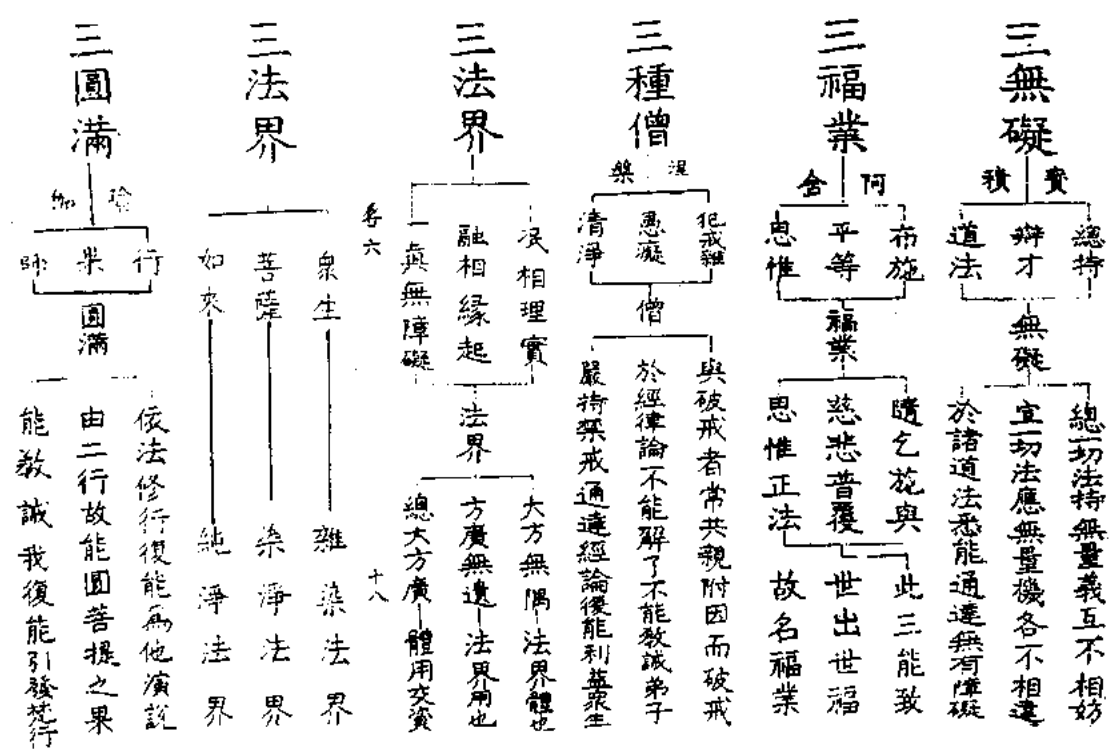 三無礙
寶積
總持
辯才
道法
無礙
總一切法持無量義互不相妨
宣一切法應無量機各不相違
於諸道法悉能通達無有障礙
三福業
阿含
布施
平等
思惟
福業
隨乞施與
慈悲普覆
思惟正法
此三能致
世出世福
故名福業
三種僧
涅槃
犯戒雜
愚癡
清淨
僧
與破戒者常共親附因而破戒
於經律論不能解了不能教誡弟子
嚴持禁戒通達經論復能利益眾生
三法界
泯相理實
融相緣起
一真無障礙
法界
大方無隅法界體也
方廣無遺法界用也
總大方廣體用交資
三法界
卷六
十八
眾生
菩薩
如來
雜染法界
染淨法界
純淨法界
三圓滿
瑜伽
行
果
師
圓滿
依法修行復能為他演說
由二行故能圓菩提之果
能教誡我復能引發梵行